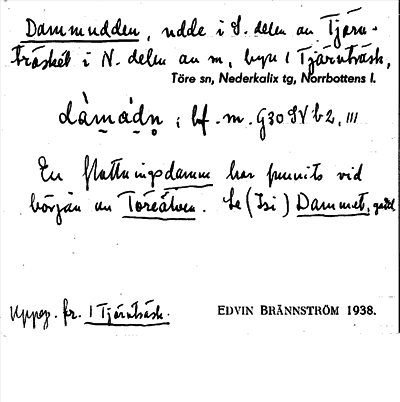 Dammudden, udde i S. delen av Tjärn-
träsket i N. delen av m, byn 1 Tjärnträsk,
Töre sn, Nederkalix tg, Norrbottens l.
dàmádn, bf. m. G30SVb2, III
En flottningsdamm har funnits vid
början av Töreälven. Se (Isi) Dammet,
Uppg. fr. 1 Tjärnträsk.
EDVIN BRÄNNSTRÖM 1938.